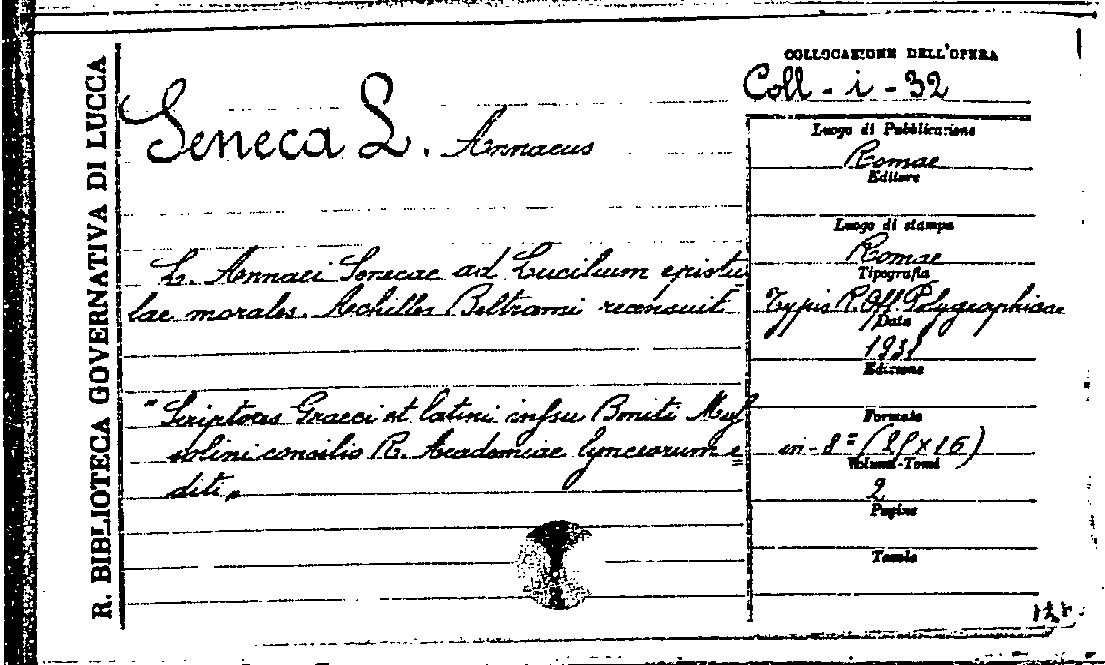 R. BIBLIOTECA GOVERNATIVA DI LUCCA
Seneca L. Annaeus
L. Annaei Senecae ad Lucilium epistu=
lae morales. Achilles Beltrami recensuit
"Scriptores Graeci et latini iussu Beniti Mus
solini consilio R. Academiae lynceorum e=
diti"
COLLOCAZIONE DELL'OPERA
Coll - i - 32
Luogo di Pubblicazione
Romae
Editore
Luogo di stampa
Romae
Tipografia
Typis R. Off. Polygraphicae
Data
1931
Edizione
Formato
in-8° (25x16)
Volumi-Tomi
2
Pagine
Tavole